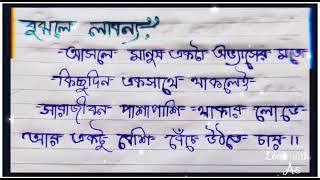 বুঝলে লাবন্য?
-আসলে মানুষ একটা অভ্যাসের মতো
-কিছুদিন একসাথে থাকলেই-
-সারাজীবন পাশাপাশি-থাকার লোভে-
-আর একটু বেশি- বেঁচে উঠতে চায়।।
As